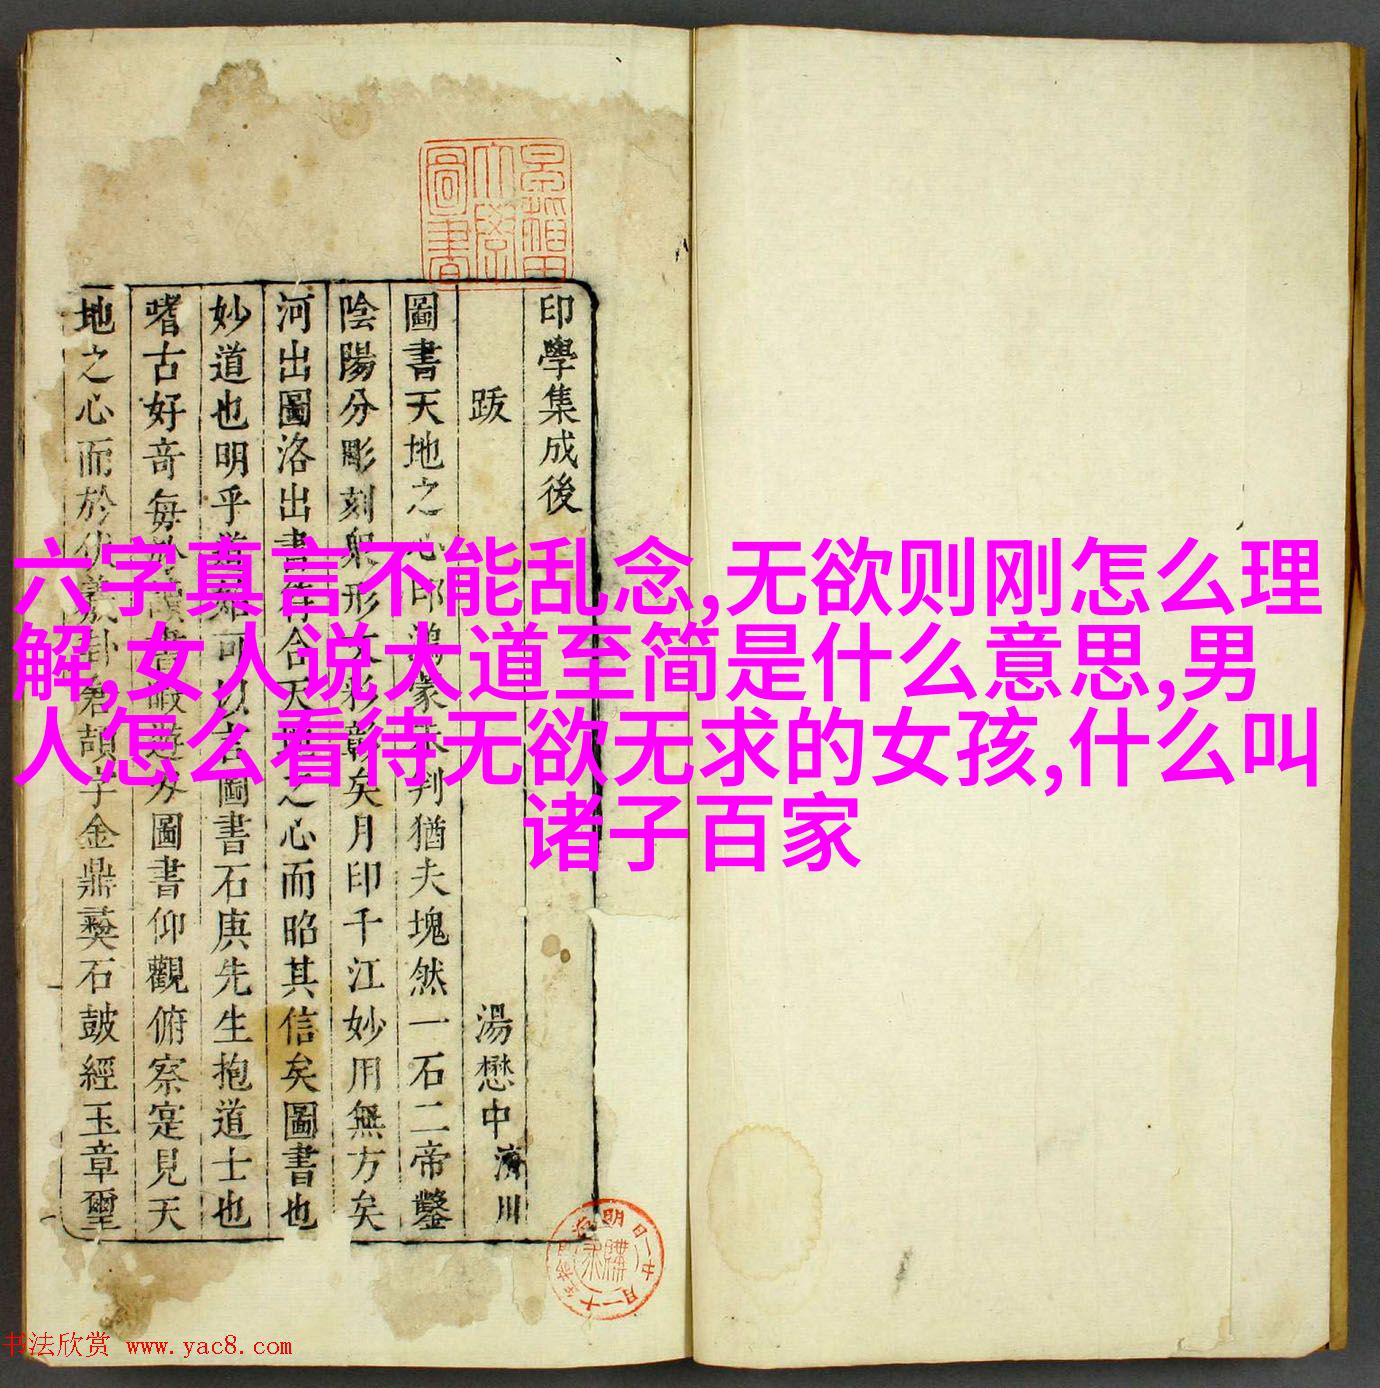 六字真言不能乱念,无欲则刚怎么理
解,女人说大道至简是什么意思,男
人怎么看待无欲无求的女孩,什么叫
诸子百家
早稻田大學圖書
印學集成後
跋 湯懋中 濟川
圖書天地之心印鴻蒙未判猶夫塊然一石二帝鑿
陰陽分彫刻形彰矣月印千江妙用無方矣
河出圖洛出書符合天之心而昭其信矣圖書也
妙道也明乎可以言圖書石庚先生抱道士也
嗜古好奇每讀書暇遊圖書仰觀俯察寔見天
地之心而於卦蒼頡字金鼎彝石鼓經玉章璽
明治
購求
书法欣赏 www.yac8.com